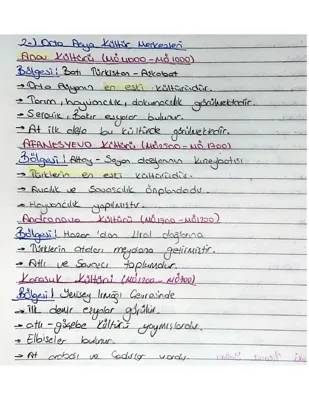 2-) Orta Asya Kültür Merkezleri
Anav Kültürü (MÖ 4000 - MÖ 1000)
Bölgesi: Batı Türkistan - Aşkabat
→ Orta Asyanın en eski kültürüdür.
→ Tarım, hayvancılık, dokumacılık görülmektedir.
→ Seramik, Bakır eşyalar bulunur.
→ At ilk defa bu kültürde görülmektedir.
AFANESYEVO Kültürü (MÖ 2500 - MÖ 1700)
Bölgesi: Altay - Sayan dağlarının kuzeybatısı
→ Türklerin en eski kültürüdür.
→ Avcılık ve Savaşçılık önplandadır.
→ Hayvancılık yapılmıştır.
Andronova Kültürü (MÖ 1700 - MÖ 1200)
Bölgesi: Hazar'dan Ural dağlarına
→ Türklerin ataları meydana gelmiştir.
→ Atlı ve Savaşçı toplumdur.
Karasuk Kültürü (MÖ 1200 - MÖ 700)
Bölgesi: Yenisey Irmağı Çevresinde
→ İlk demir eşyalar görülür.
→ atlı - göçebe kültürü yaymışlardır.
→ Elbiseler bulunur.
→ At arabası ve Çadırlar vardır.